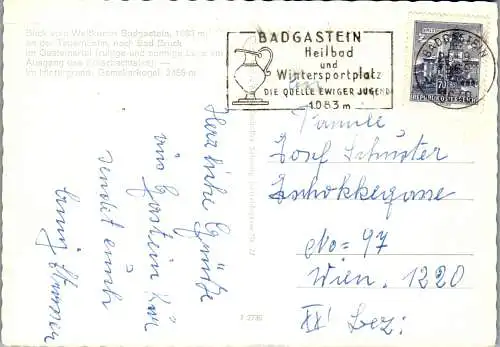 Blick vom Weltkurort Badgastein, 1083 m,
an der Tauernbahn, nach Bad Bruck
im Gasteinertal (ruhige und sonnige Lage am
Ausgang des Kötschachtales) —
im Hintergrund: Gamskarkogel 2465 m
BADGASTEIN
Heilbad
und
Wintersportplatz
DIE QUELLE EWIGER JUGEND
1083 m
BADGASTEIN
REPUBLIK ÖSTERREICH
Herzliche Grüße
aus Gastein
sendet euch
Familie
Josef Schuster
Zschokkegasse
No = 97
Wien, 1220
XXII Bez: